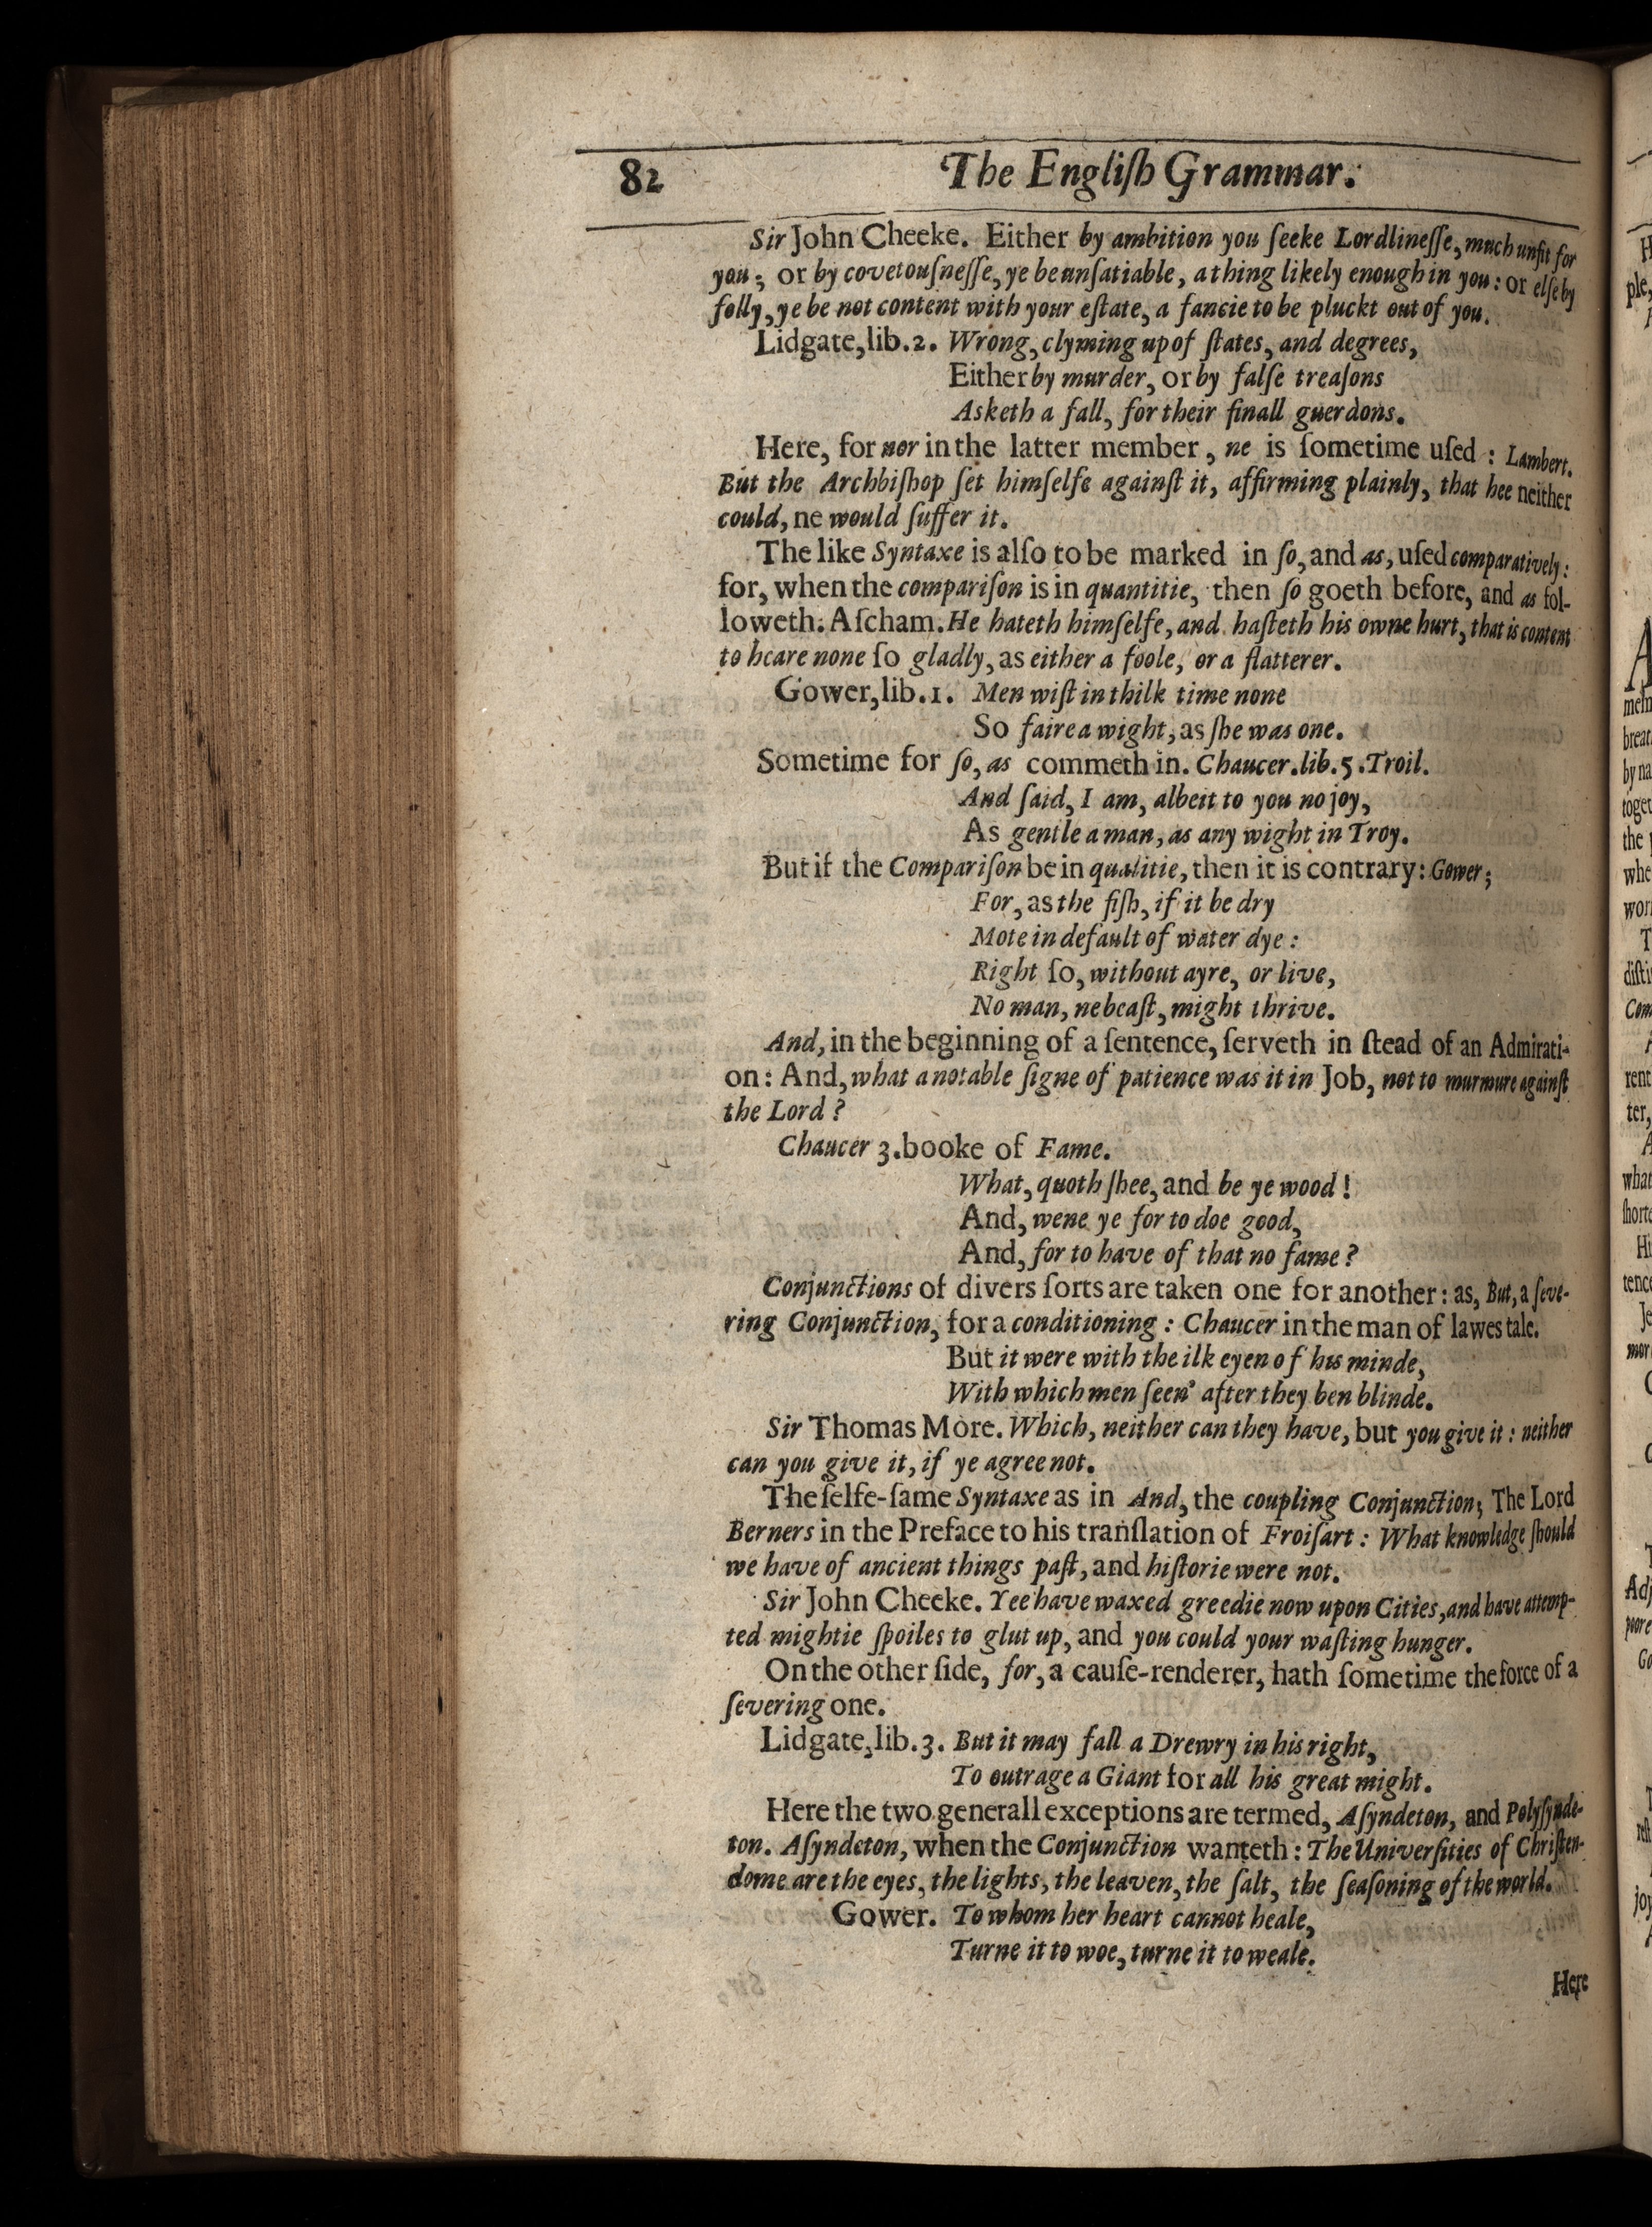 82 The Engliſh Grammar.
Sir John Cheeke. Either by ambition you ſeeke Lordlineſſe, much unfit for
you; or by covetouſneſſe, ye be unſatiable, a thing likely enough in you: or elſe by
folly, ye be not content with your eſtate, a fancie to be pluckt out of you.
Lidgate, lib. 2. Wrong, clyming up of ſtates, and degrees,
Either by murder, or by falſe treaſons
Asketh a fall, for their finall guerdons.
Here, for nor in the latter member, ne is ſometime uſed: Lambert.
But the Archbiſhop ſet himſelfe againſt it, affirming plainly, that hee neither
could, ne would ſuffer it.
The like Syntaxe is alſo to be marked in ſo, and as, uſed comparatively:
for, when the compariſon is in quantitie, then ſo goeth before, and as fol-
loweth. Aſcham. He hateth himſelfe, and haſteth his owne hurt, that is content
to hcare none ſo gladly, as either a foole, or a flatterer.
Gower, lib. 1. Men wiſt in thilk time none
So faire a wight, as ſhe was one.
Sometime for ſo, as commeth in. Chaucer. lib. 5. Troil.
And ſaid, I am, albeit to you no joy,
As gentle a man, as any wight in Troy.
But if the Compariſon be in qualitie, then it is contrary: Gower;
For, as the fiſh, if it be dry
Mote in default of water dye:
Right ſo, without ayre, or live,
No man, ne bcaſt, might thrive.
And, in the beginning of a ſentence, ſerveth in ſtead of an Admirati-
on: And, what a notable ſigne of patience was it in Job, not to murmure againſt
the Lord?
Chaucer 3. booke of Fame.
What, quoth ſhee, and be ye wood!
And, wene ye for to doe good,
And, for to have of that no fame?
Conjunctions of divers ſorts are taken one for another: as, But, a ſeve-
ring Conjunction, for a conditioning: Chaucer in the man of lawes tale.
But it were with the ilk eyen of his minde,
With which men ſeen' after they ben blinde.
Sir Thomas More. Which, neither can they have, but you give it: neither
can you give it, if ye agree not.
The ſelfe-ſame Syntaxe as in And, the coupling Conjunction; The Lord
Berners in the Preface to his tranſlation of Froiſart: What knowledge ſhould
we have of ancient things paſt, and hiſtorie were not.
Sir John Cheeke. Yee have waxed greedie now upon Cities, and have attemp-
ted mightie ſpoiles to glut up, and you could your waſting hunger.
On the other ſide, for, a cauſe-renderer, hath ſometime the force of a
ſevering one.
Lidgate, lib. 3. But it may fall a Drewry in his right,
To outrage a Giant for all his great might.
Here the two generall exceptions are termed, Aſyndeton, and Polyſynde-
ton. Aſyndeton, when the Conjunction wanteth: The Univerſities of Chriſten-
dome are the eyes, the lights, the leaven, the ſalt, the ſeaſoning of the world.
Gower. To whom her heart cannot heale,
Turne it to woe, turne it to weale.
Here